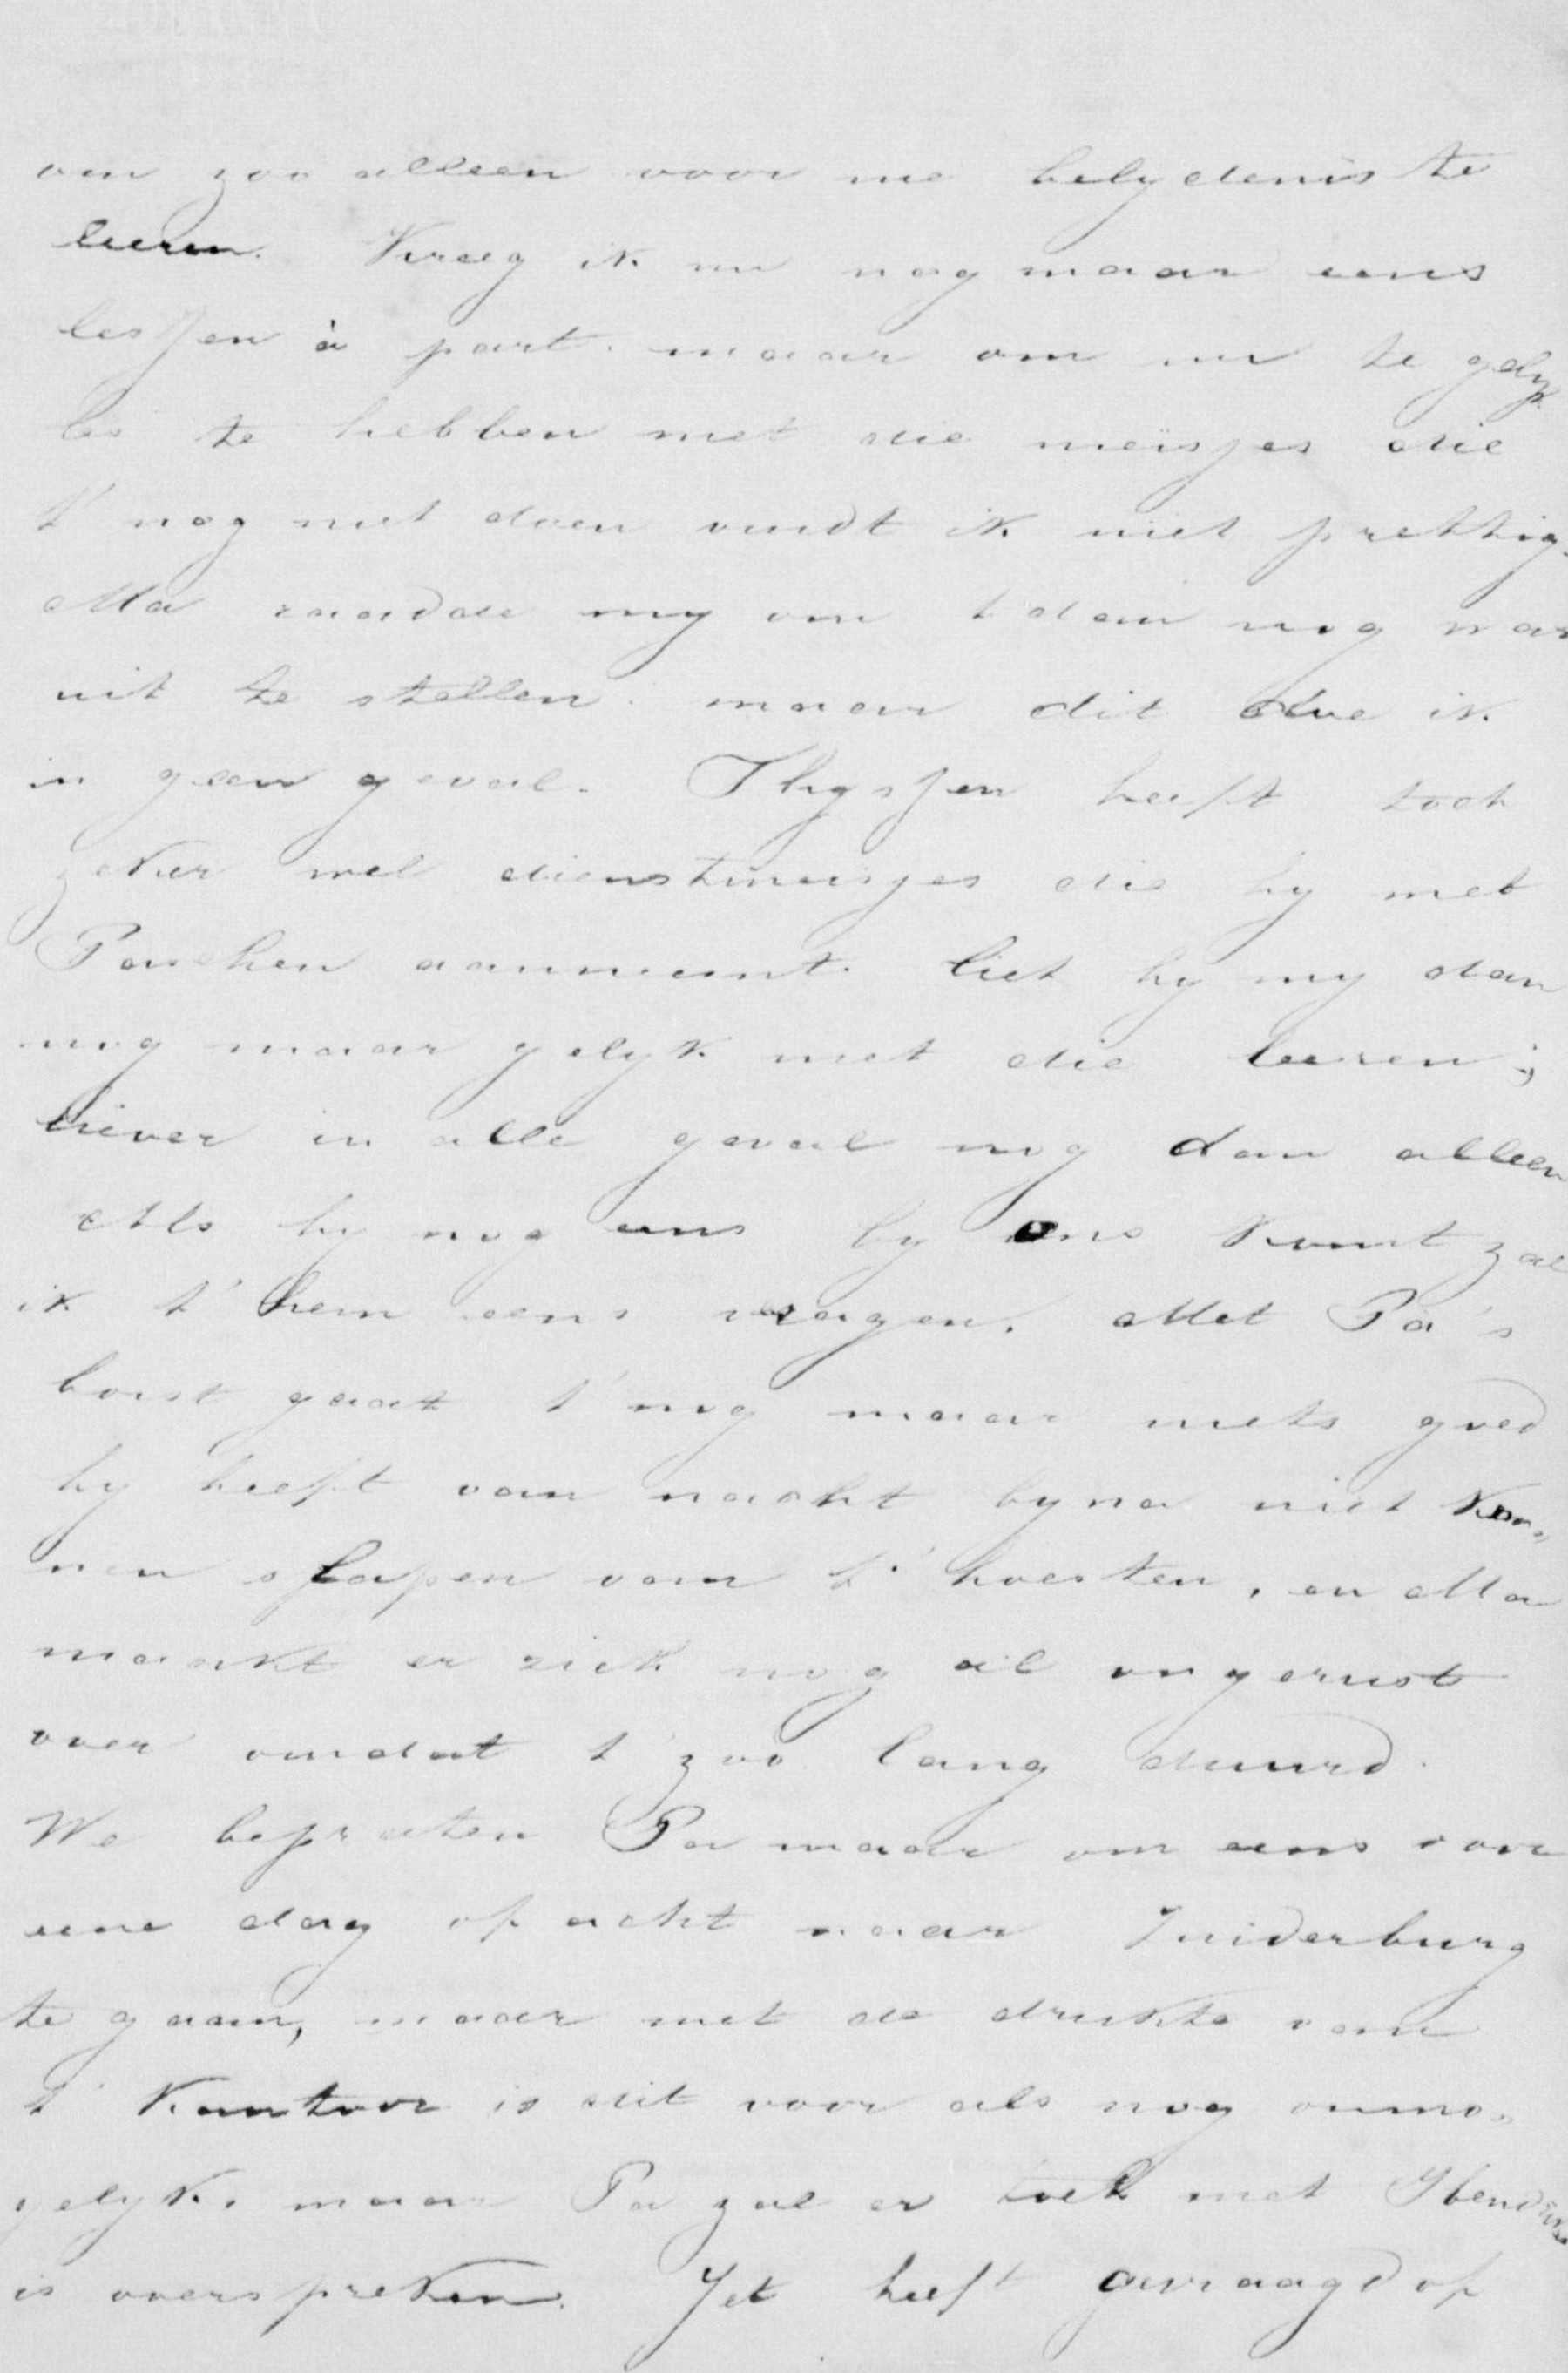 om zoo alleen voor me belydenis te
leeren. Kreeg ik nu nog maar eens
lessen à part. maar om nu te gelyk
les te hebben met die meisjes die
t' nog niet doen vindt ik niet prettig.
Ma raadde my om t dan nog wat
uit te stellen. maar dit doe ik
in geen geval. Thyssen heeft toch
zeker wel dienstmeisjes die hy met
Paschen aanneemt. liet hy my dan
nog maar gelyk met die leeren;
liever in alle geval nog dan alleen
Als hy nog eens by ons komt zal
ik t' hem eens vragen. Met Pa's
borst gaat t' nog maar niets goed
hy heeft van nacht byna niet kon„
nen slapen van t' hoesten, en Ma
maakt er zich nog al ongerust
over omdat t' zoo lang duurd.
We bepraten Pa maar om eens voor
eene dag of acht naar Zuiderburg
te gaan, maar met de drukte van
t' Kantoor is dit voor als nog onmo„
gelyk. maar Pa zal er toch met
is overspreken. Jet heeft gevraagd of